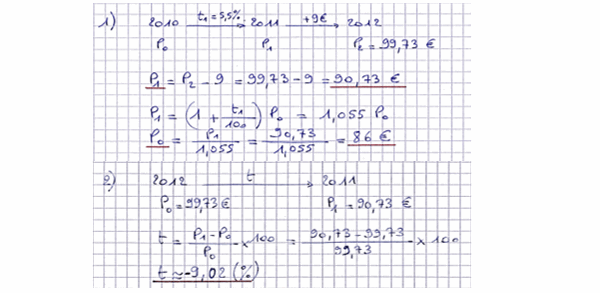 1) 2010 t₁=5,5% 2011 +9€ 2012
P₀ P₁ P₂=99,73 €
P₁ = P₂ - 9 = 99,73 - 9 = 90,73 €
P₁ = (1 + t₁/100) P₀ = 1,055 P₀
P₀ = P₁/1,055 = 90,73/1,055 = 86 €
2) 2012 t 2011
P₀=99,73€ P₁ = 90,73 €
t = P₁-P₀/P₀ × 100 = 90,73-99,73/99,73 × 100
t ≈ -9,02 (%)